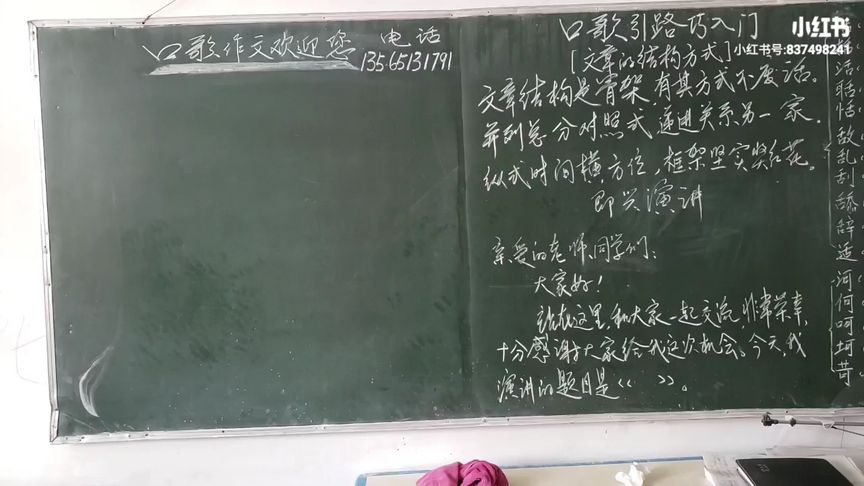 口歌作文欢迎您 电话
13565131791
口歌引路巧入门
[文章的结构方式]
文章结构是骨架,有其方式不废话。
并列总分对照式,递进关系另一家。
纵式时间横方位,框架坚实繁红花。
即兴演讲
亲爱的老师、同学们:
大家好!
站在这里,和大家一起交流,非常荣幸,
十分感谢大家给我这次机会。今天,我
演讲的题目是《 》。
活
聒
恬
敌
乱
刮
舔
辞
适
河
何
呵
坷
苛
小红书
小红书号:837498241